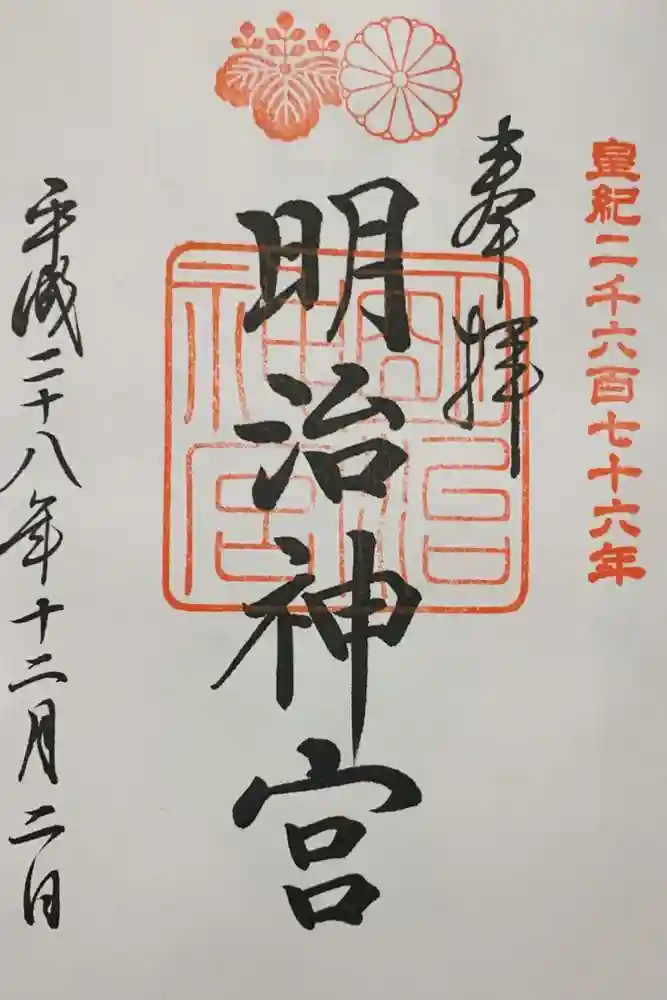 皇紀二千六百七十六年
奉拝
明治神宮
明治神宮
平成二十八年十二月二日